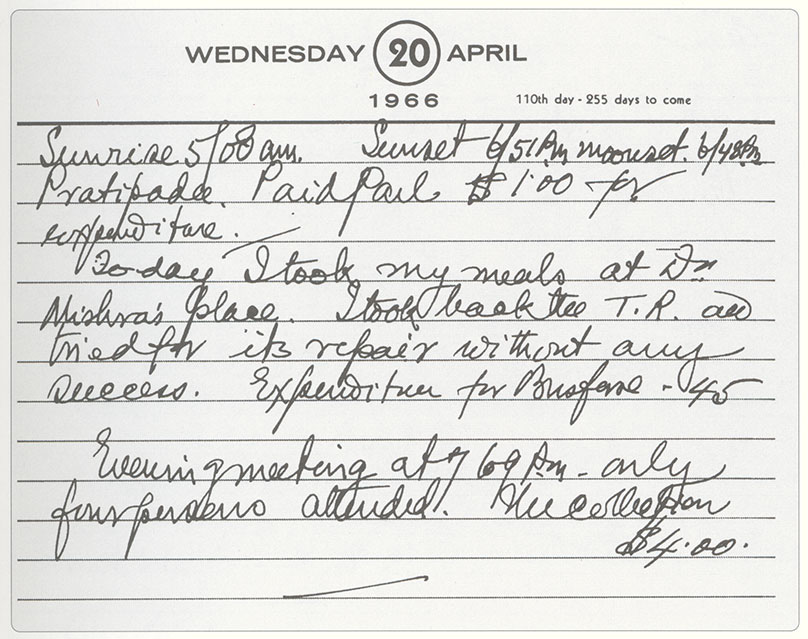 WEDNESDAY 20 APRIL
1966
110th day - 255 days to come
Sunrise 5/08 am. Sunset 6/51 Pm moonset. 6/48 Pm
Pratipada. Paid Paul $1.00 for
expenditure.
To-day I took my meals at Dr.
Mishra's place. I took back the T.R. and
tried for its repair without any
success. Expenditure for Busfare - 45
Evening meeting at 7 to 9 Pm - only
four persons attended. The collection
$4.00.